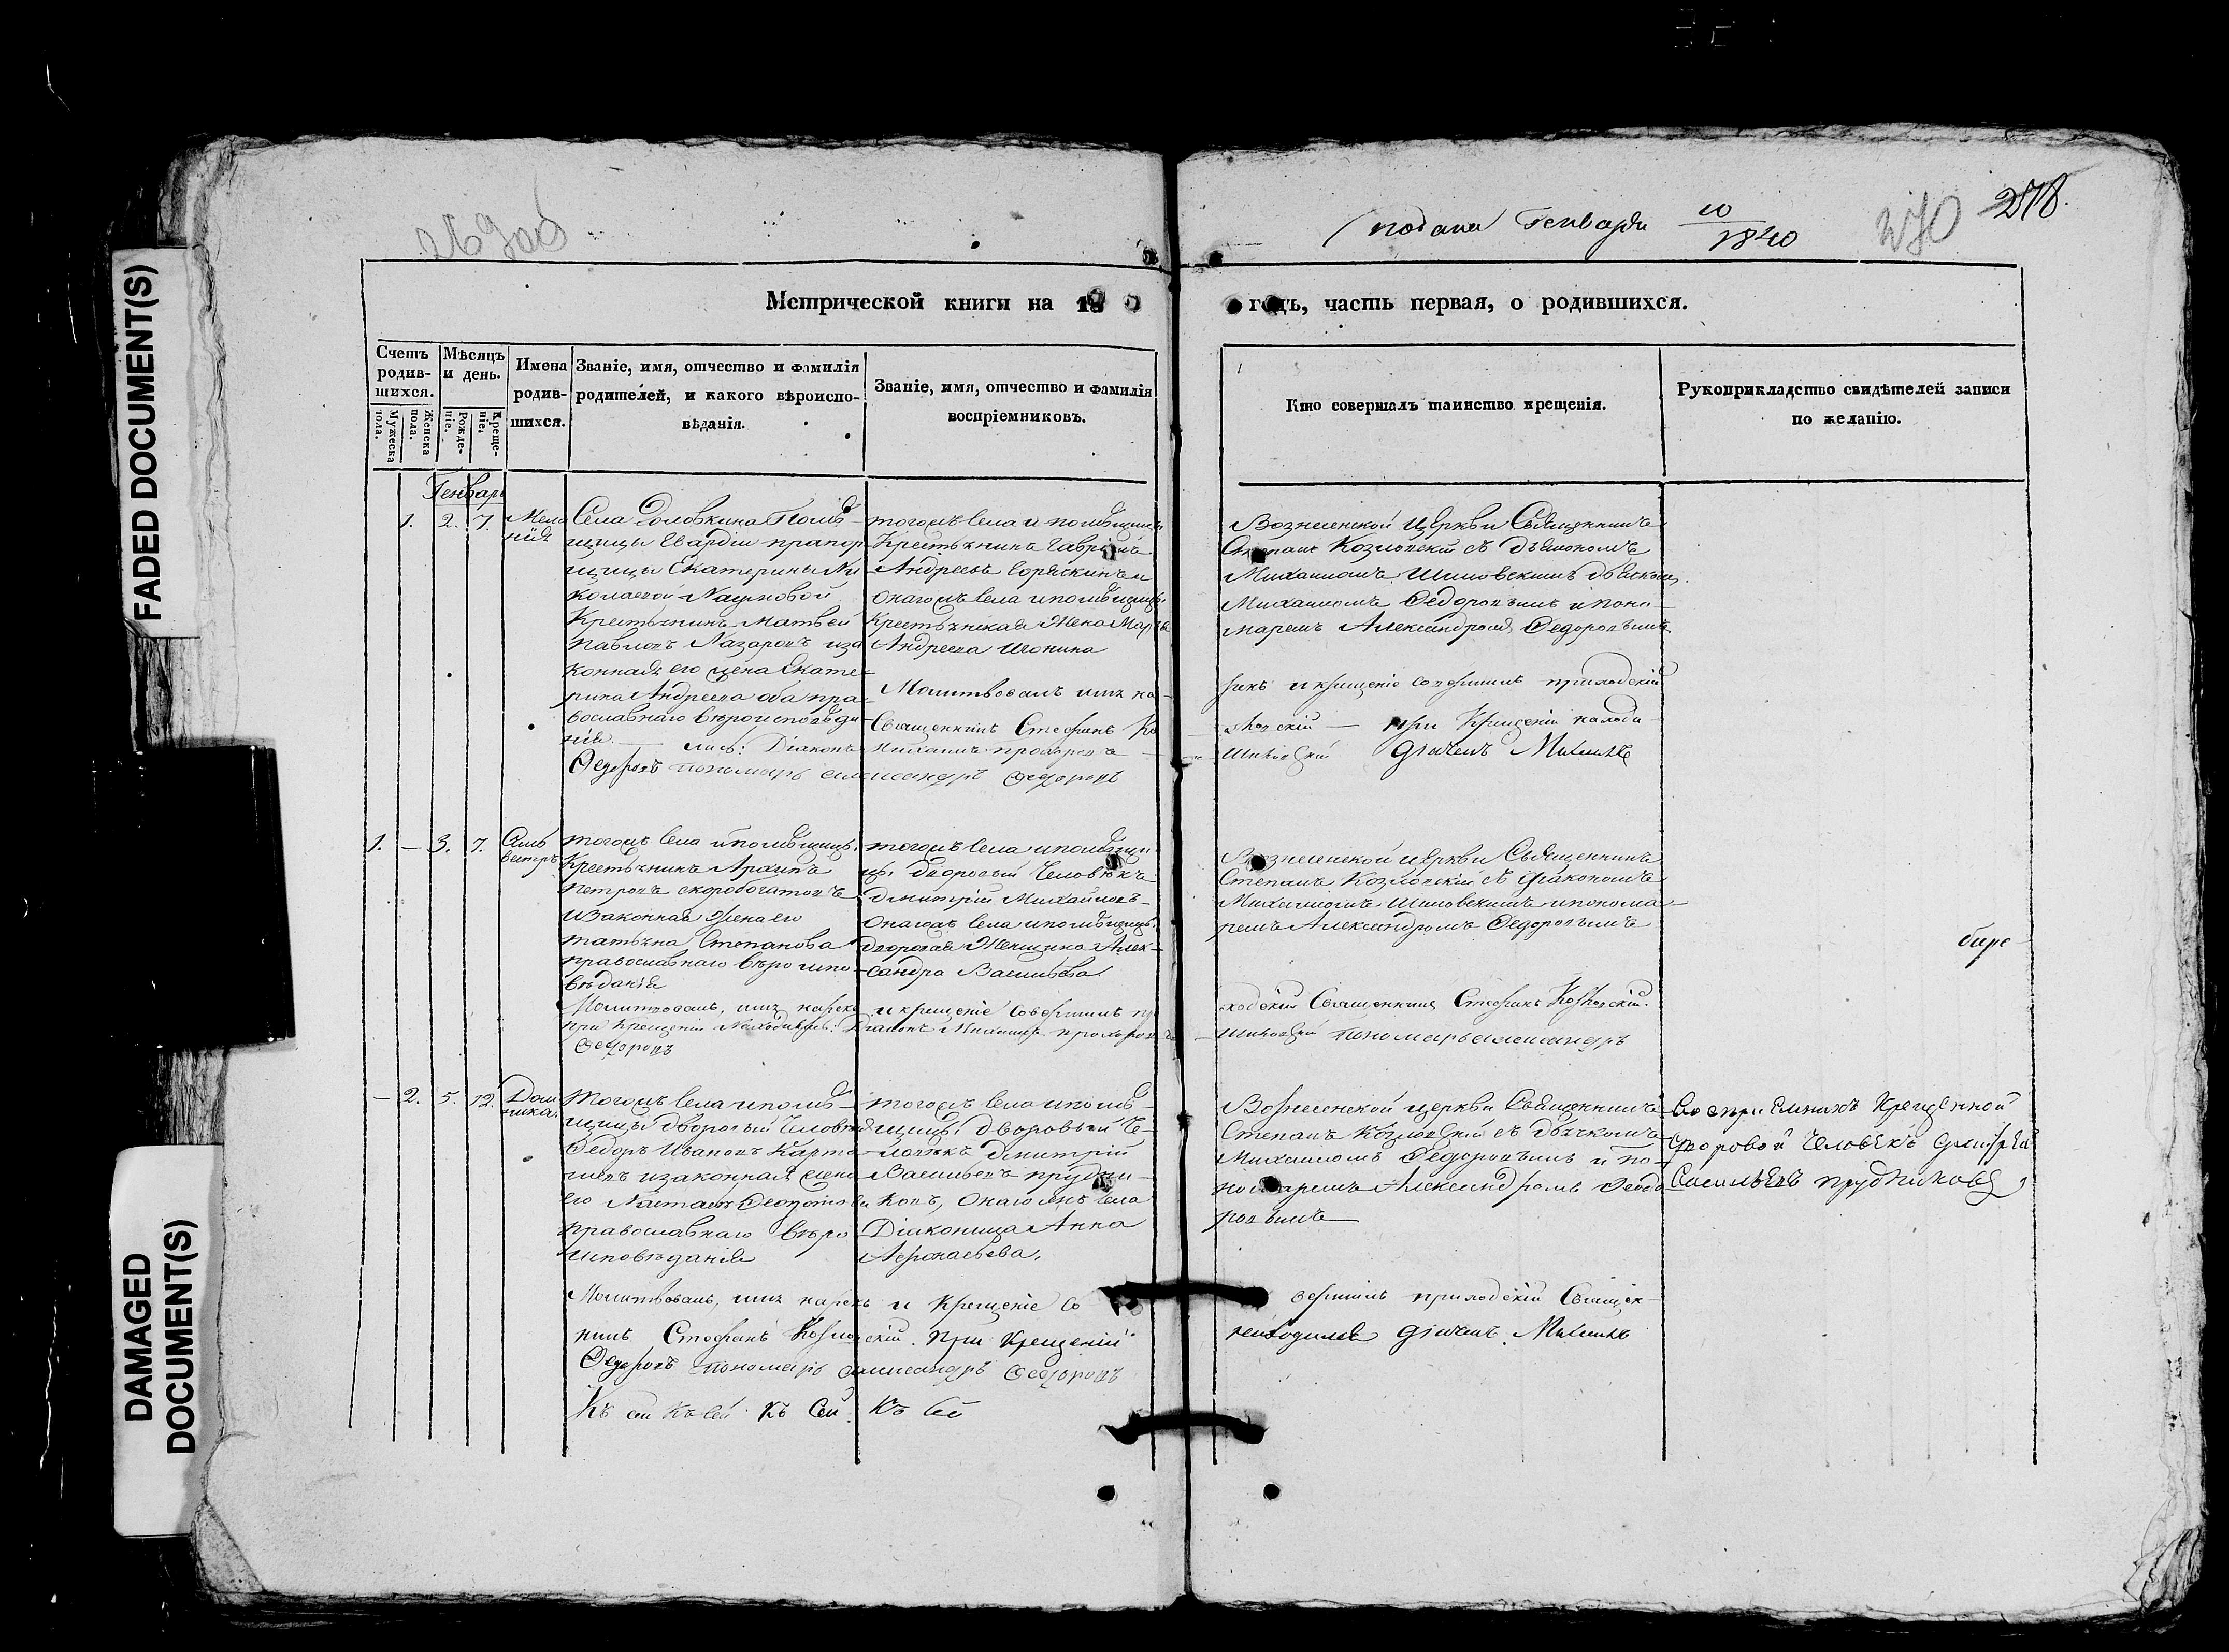 FADED DOCUMENT(S)
DAMAGED
DOCUMENT(S)
подана Генваря 10/1840
270 278.
Метрической книги на 18
годъ, часть первая, о родившихся.
Счетъ родив-шихся.
Мужеска пола.
Женска пола.
Мѣсяцъ и день.
Рожде-ніе.
Креще-ніе.
Имена родив-шихся.
Званіе, имя, отчество и фамилія
родителей, и какого вѣроиспо-
вѣданія.
Званіе, имя, отчество и фамилія
воспріемниковъ.
Кто совершалъ таинство крещенія.
Рукоприкладство свидѣтелей записи
по желанію.
Генварь
1. 2. 7.
Мела
нія
Села Головкина Помѣ-
щицы Гвардіи прапор
щицы Екатерины Ни
колаевой Наумовой
Крестьянинъ Матвей
Павловъ Назаровъ иза
конная его жена Екате-
рина Андреева оба пра-
вославнаго вѣроисповѣда-
нія.
тогожъ села и помѣщицы
Крестьянинъ Гаврила
Андреевъ и
онагожъ села и помѣщицы
крестьянская Жена Марѳа
Андреева
Вознесенской Церкви Священникъ
Степанъ Козловскій съ дьякономъ
Михаиломъ Шиловскимъ дьячкомъ
Михаиломъ Федоровымъ и поно-
маремъ Александромъ Федоровымъ
Молитвовалъ имя на-
рекъ и крещеніе совершилъ приходскій
Священникъ Стефанъ Ко
зловскій — при Крещеніи находи-
лись: Діаконъ Михаилъ Прохоровъ
Шиловскій Дьячекъ Михаилъ
Федоровъ пономарь Александръ Федоровъ
1. — 3. 7.
Силь
вестръ
тогожъ села и помѣщицы
Крестьянинъ Архипъ
Петровъ скоробогатовъ
и законная жена его
татьяна Степанова
православнаго вѣроиспо-
вѣданія
тогожъ села и помѣщи
цы дворовый Человѣкъ
Дмитрій Михайловъ
Онагожъ села и помѣщицы
дворовая Женщина Алек-
сандра Васильева
Вознесенской церкви Священникъ
Степанъ Козловскій съ дьякономъ
Михаиломъ Шиловскимъ и понома-
ремъ Александромъ Федоровымъ
Молитвовалъ, имя нареки и крещеніе совершилъ при
ходскій Священникъ Стефанъ Козловскій.
при Крещеніи Находились: Діаконъ Михаилъ Прохоровъ
Шиловскій пономарь Александръ
Федоровъ
— 2. 5. 12.
Дом
ника.
Тогожъ села и помѣ-
щицы дворовый Человѣкъ
Федоръ Ивановъ Карта-
шевъ и законная жена
его Настасья
православнаго вѣро
исповѣданія
тогожъ села и помѣ-
щицы дворовый Че-
ловѣкъ Дмитрій
Васильевъ Прудни-
ковъ, Онагожъ села
Діаконица Анна
Афонасьева.
Вознесенской церкви Священникъ
Степанъ Козловскій съ дьячкомъ
Михаиломъ Федоровымъ и по-
номаремъ Александромъ Федо
ровымъ
Воспріемникъ Крещенной
дворовой Человѣкъ Дмитрей
Васильевъ прудниковъ
Молитвовалъ, имя нарекъ и Крещеніе Со
вершилъ приходскій Священ-
никъ Стефанъ Козловскій. При Крещеніи
находились Дьячекъ Михаилъ
Федоровъ пономарь Александръ Федоровъ
Къ сей Къ сей Къ Сей Къ сей